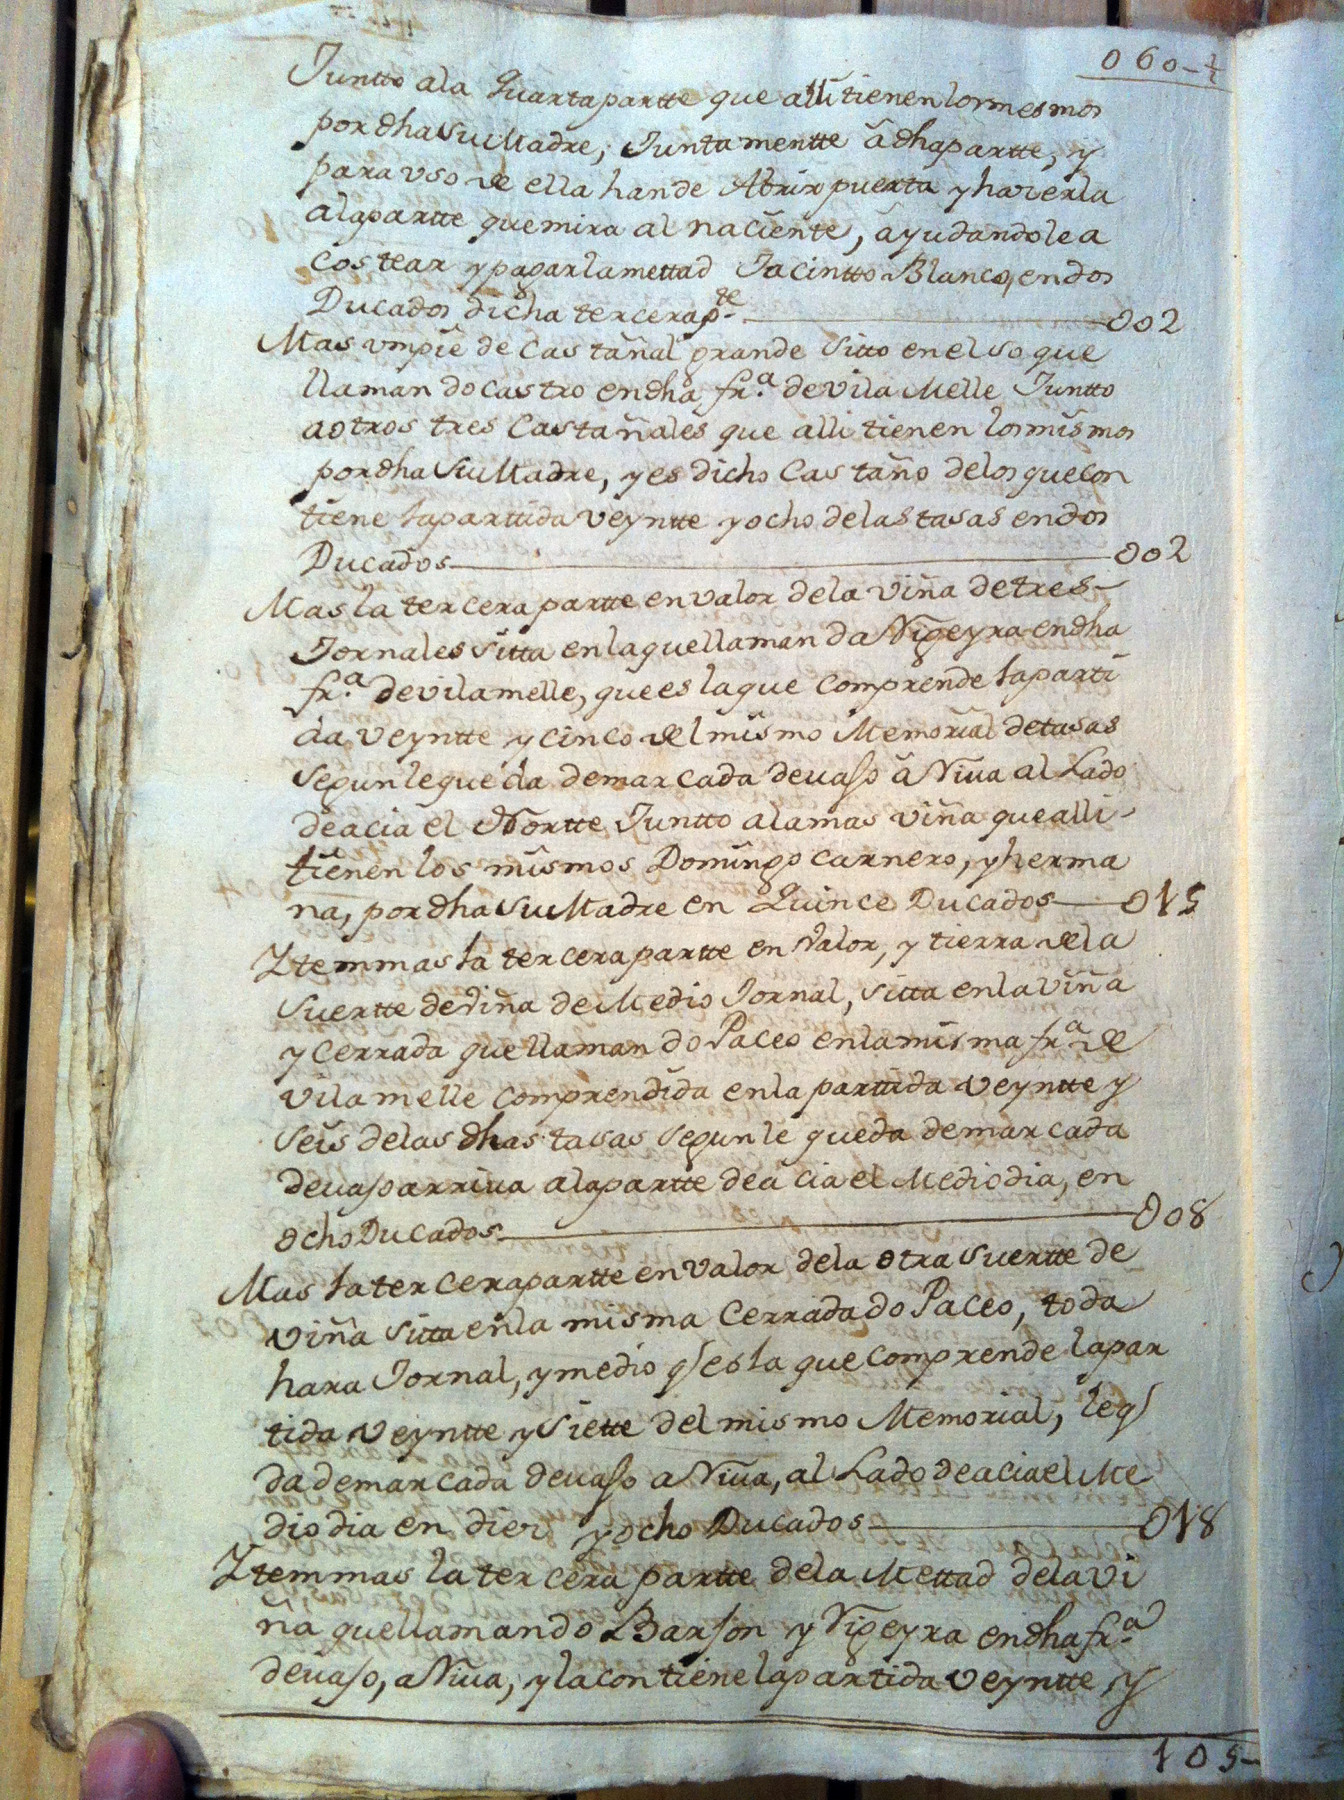 060-½
Juntto ala Quartapartte que alli tienen losmesmos
por dha su Madre, Juntamentte â dhapartte, y
para vso de ella han de Abrir puerta y haverla
alapartte que mira al naciente, âyudandole a
costear y pagar lamettad Jacintto Blanco, en dos
Ducados dicha tercera pte 002
Mas vmpie de Castañal grande sitto en el so que
llaman do castro en dha frª de vila Melle Juntto
aotros tres Castañales que alli tienen losmismos
por dha su Madre, y es dicho Castaño delos que con
tiene laparttida veyntte y ocho delas tasas en dos
Ducados 002
Mas la tercera partte en valor dela viña de tres
Jornales sitta en la que llaman da Nigeyra en dha
frª de vilamelle, que es la que comprende laparti
da veyntte y cinco del mismo Memorial detasas
segun le queda demarcada de vaso â Riva al Lado
deacia el Nortte Juntto alamas viña que alli
tienen los mismos Domingo carnero, y herma
na, por dha su Madre en Quince Ducados 015
Ytemmas la tercera partte en valor, y tierra dela
suertte deviña de Medio Jornal, sitta en la viña
y cerrada que llaman do Paceo en la misma frª de
vilamelle comprendida en la parttida veyntte y
seis delas dhas tasas segun le queda demarcada
devaso arriva alapartte deacia el Mediodia, en
ocho Ducados 008
Mas la tercerapartte en valor dela otra suertte de
viña sitta en la misma Cerrada do Paceo, toda
hara Jornal, y medio q es la que comprende la par
tida veyntte y siette del mismo Memorial, leq
da demarcada devaso a Riva, al Lado deacia el Me
dio dia en diez y ocho Ducados 018
Ytemmas la tercera partte dela Mettad dela vi
ña que llaman do Barson y Nigeyra en dha frª
devaso, a Riva, y la contiene la partida veyntte y
105-